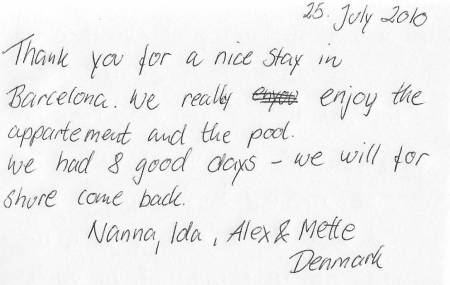 25. July 2010
Thank you for a nice stay in
Barcelona. We really enjoy the
appartement and the pool.
We had 8 good days - we will for
shure come back.
Nanna, Ida, Alex & Mette
Denmark